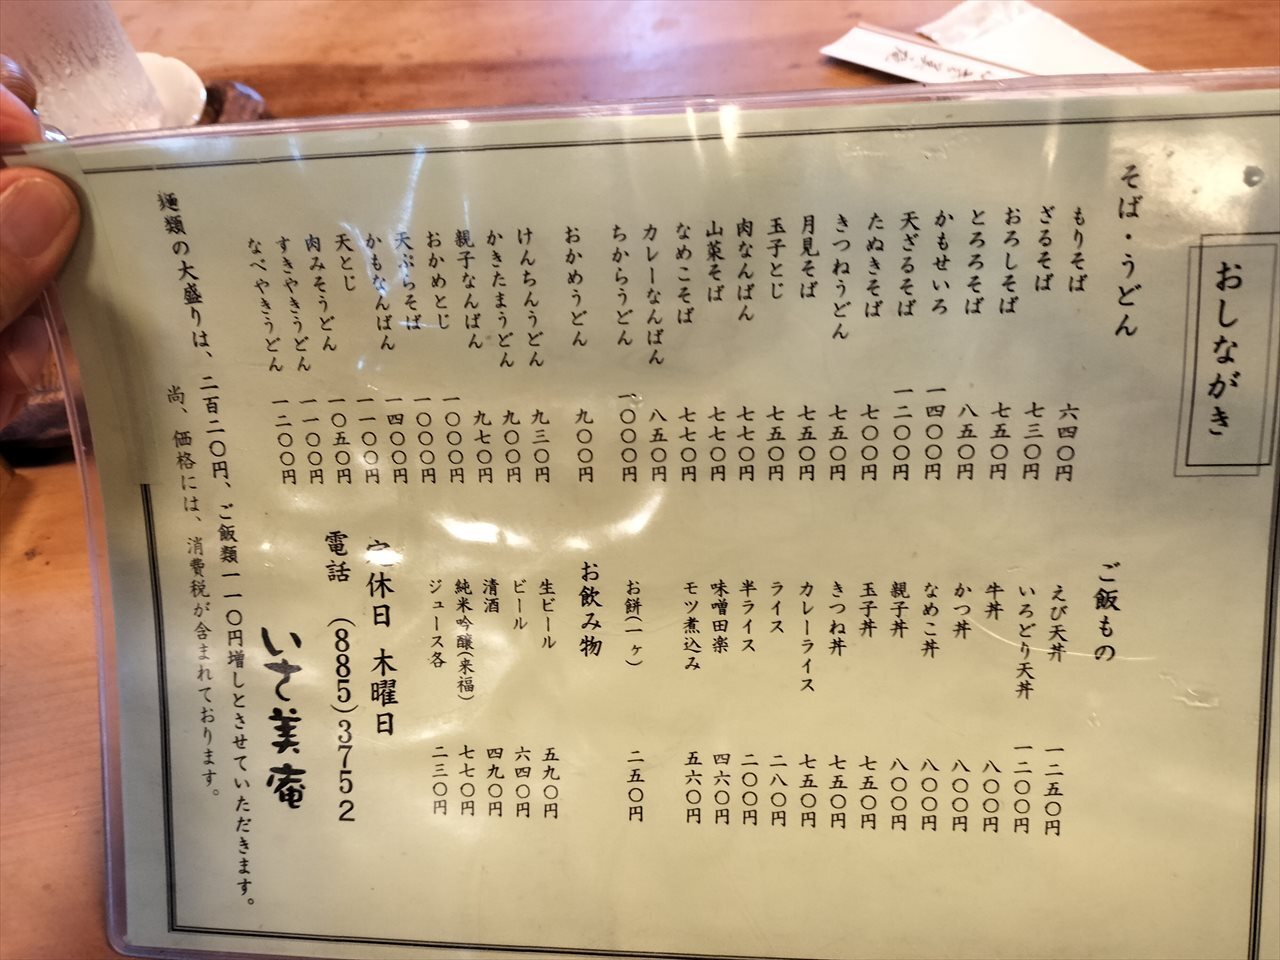 おしながき
そば・うどん
もりそば 六四〇円
ざるそば 七三〇円
おろしそば 七五〇円
とろろそば 八五〇円
かもせいろ 一四〇〇円
天ざるそば 一二〇〇円
たぬきそば 七〇〇円
きつねうどん 七五〇円
月見そば 七五〇円
玉子とじ 七五〇円
肉なんばん 七七〇円
山菜そば 七七〇円
なめこそば 七七〇円
カレーなんばん 八五〇円
ちからうどん 一〇〇〇円
おかめうどん 九〇〇円
けんちんうどん 九三〇円
かきたまうどん 九〇〇円
親子なんばん 九七〇円
おかめとじ 一〇〇〇円
天ぷらそば 一〇〇〇円
かもなんばん 一四〇〇円
天とじ 一一〇〇円
肉みそうどん 一〇五〇円
すきやきうどん 一一〇〇円
なべやきうどん 一二〇〇円
ご飯もの
えび天丼 一二五〇円
いろどり天丼 一二〇〇円
牛丼 八〇〇円
かつ丼 八〇〇円
なめこ丼 八〇〇円
親子丼 八〇〇円
玉子丼 七五〇円
きつね丼 七五〇円
カレーライス 七五〇円
ライス 二八〇円
半ライス 二〇〇円
味噌田楽 四六〇円
モツ煮込み 五六〇円
お餅(一ヶ) 二五〇円
お飲み物
生ビール 五九〇円
ビール 六四〇円
清酒 四九〇円
純米吟醸(来福) 七七〇円
ジュース各 二三〇円
定休日 木曜日
電話 (885)3752
いさ美庵
麺類の大盛りは、二百二〇円、ご飯類一一〇円増しとさせていただきます。
尚、価格には、消費税が含まれております。